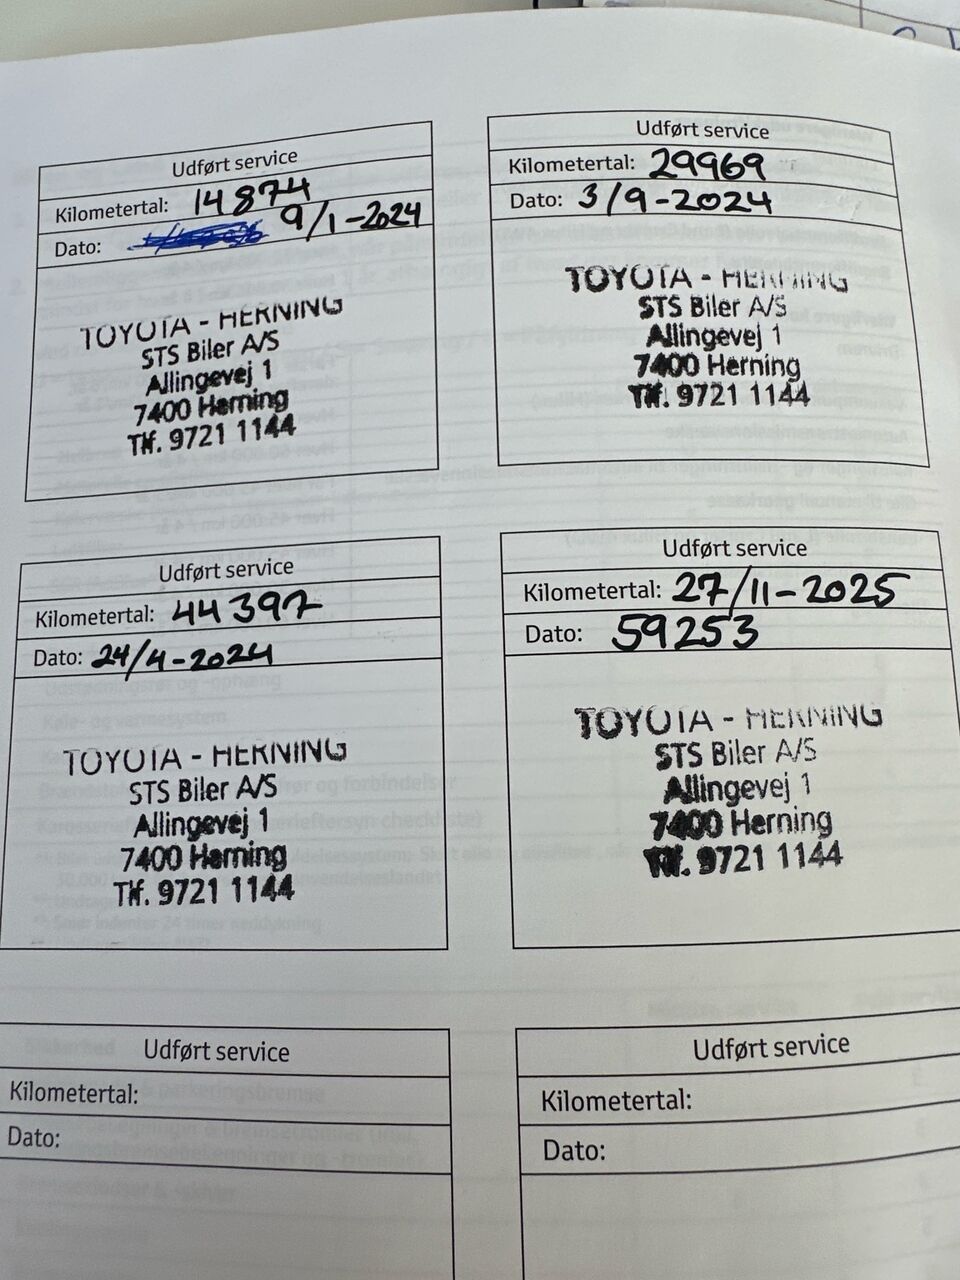 Udført service
Kilometertal: 14874
Dato: 9/1-2024
TOYOTA - HERNING
STS Biler A/S
Allingevej 1
7400 Herning
Tlf. 9721 1144
Udført service
Kilometertal: 29969
Dato: 3/9-2024
TOYOTA - HERNING
STS Biler A/S
Allingevej 1
7400 Herning
Tlf. 9721 1144
Udført service
Kilometertal: 44397
Dato: 24/4-2024
TOYOTA - HERNING
STS Biler A/S
Allingevej 1
7400 Herning
Tlf. 9721 1144
Udført service
Kilometertal: 27/11-2025
Dato: 59253
TOYOTA - HERNING
STS Biler A/S
Allingevej 1
7400 Herning
Tlf. 9721 1144
Udført service
Kilometertal:
Dato:
Udført service
Kilometertal:
Dato: